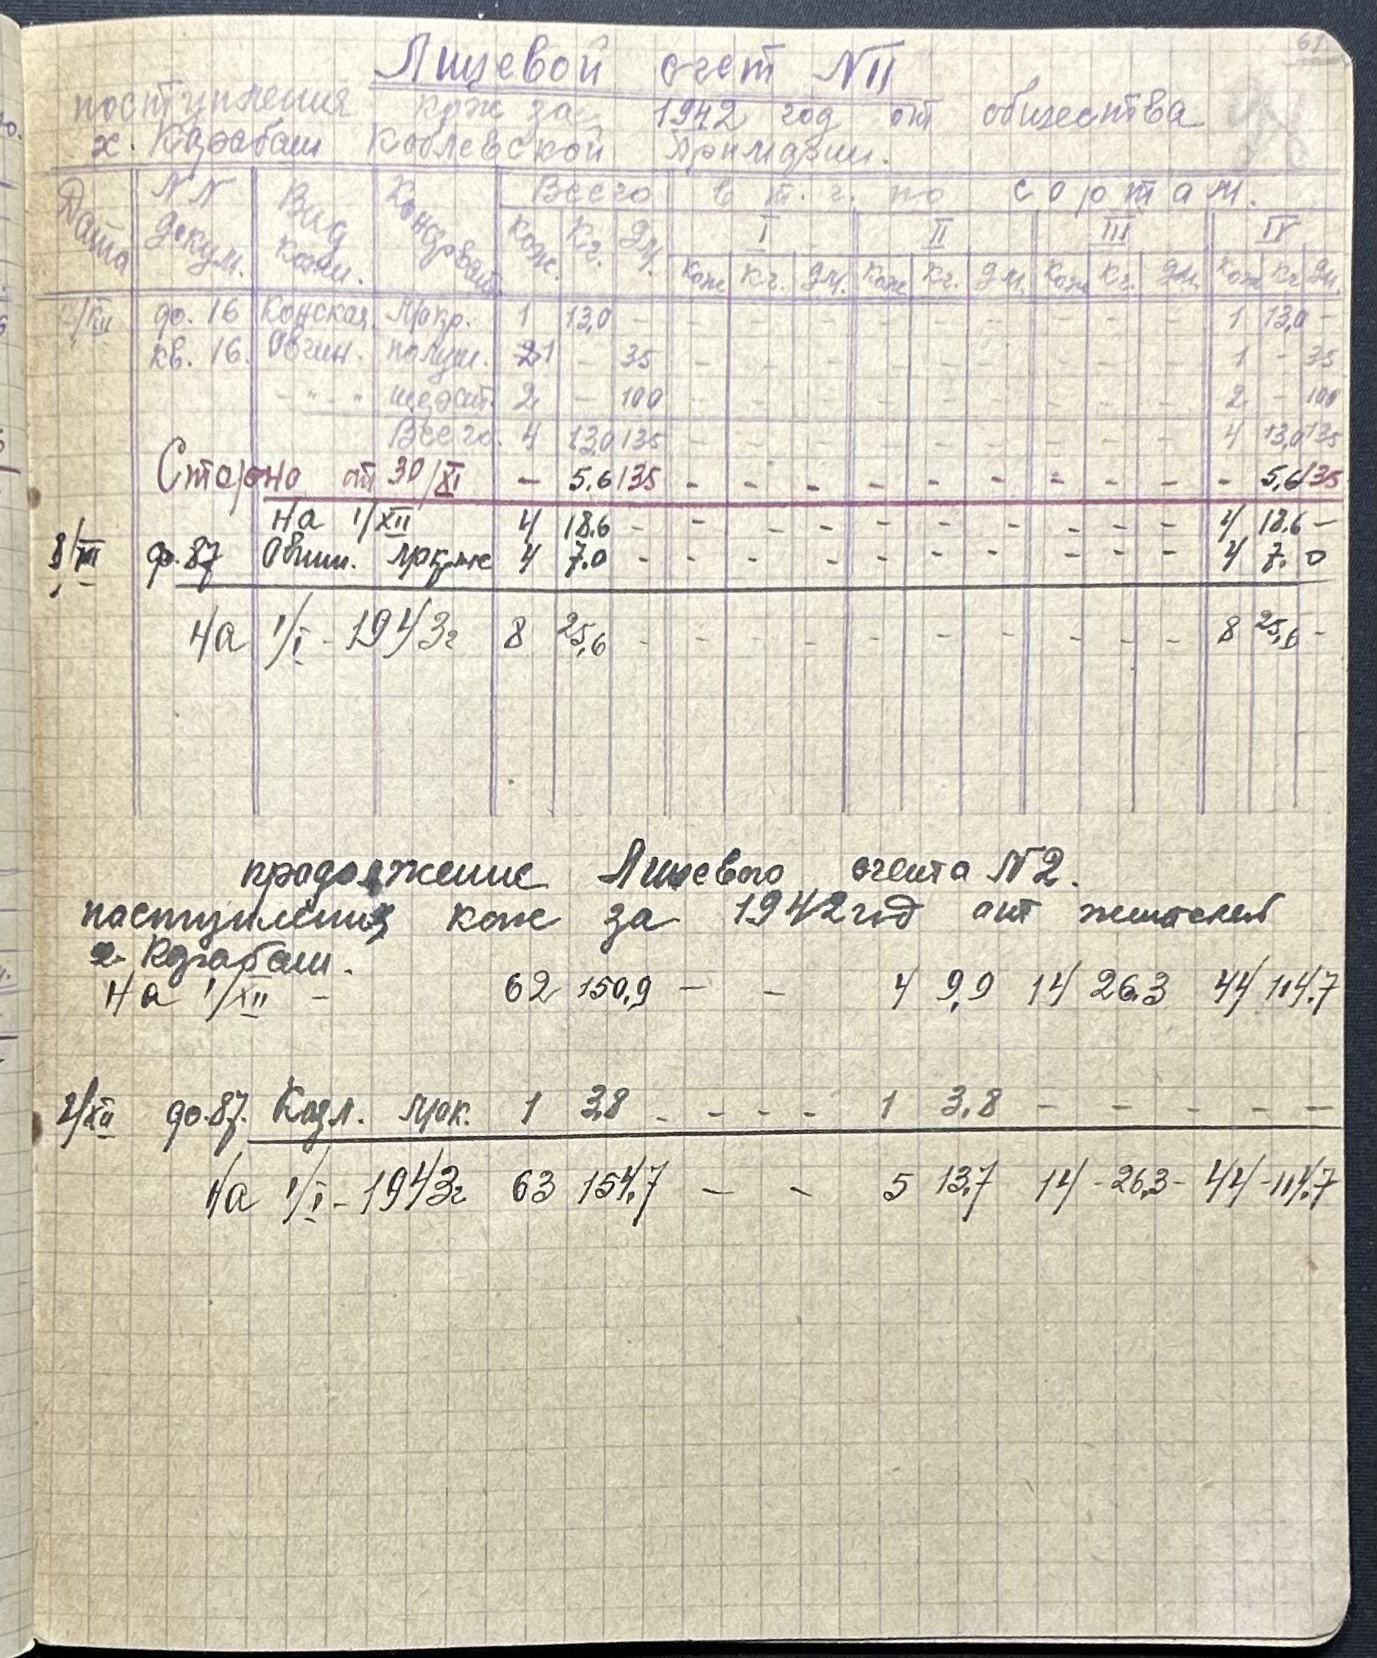 61
Лицевой счет № 11
поступления кож за 1942 год от общества
х. Карабаш Коблевской Примарии.
Дата №№ докум. Вид кожи. Кондрвент. Всего в т. ч. по сортам.
кож. кг. дм. I II III IV
кож кг. дм. кож кг. дм. кож кг. дм. кож кг дм.
/XII до. 16 Конская мокр. 1 13,0 - - - - - - - - - - 1 13,0 -
кв. 16. Овчин. полуш. 21 - 35 - - - - - - - - - 1 - 35
- " - " шерст. 2 - 100 - - - - - - - - - 2 - 100
Всего. 4 13,0 135 - - - - - - - - - 4 13,0 135
Сторно от 30/XI - 5,6 135 - - - - - - - - - - 5,6 135
На 1/XII 4 18.6 - - - - - - - - - - 4 18.6 -
8/XII до. 87 Овчин. 4 7.0 - - - - - - - - - - 4 7. 0
На 1/I - 1943г 8 25,6 - - - - - - - - - - 8 25,6 -
продолжение Лицевого счета №2.
поступления кож за 1942 год от жителей
х. Карабаш.
На 1/XII - 62 150,9 - - 4 9,9 14 26,3 44 114.7
2/XII до. 87. Козл. мок. 1 3,8 - - - - 1 3,8 - - - - -
На 1/I - 1943г 63 154,7 - - 5 13,7 14 - 26,3 - 44 - 114.7